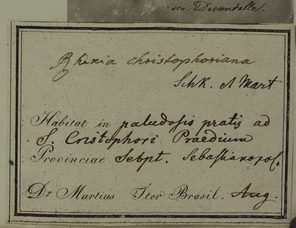 Decandolle.
Rhexia christophoriana
Schk. & Mart
Habitat in paludosis pratis ad
S. Cristophori Praedium
Provinciae Sebpt. Sebastianopol.
Dr Martius Iter Brasil. Aug.